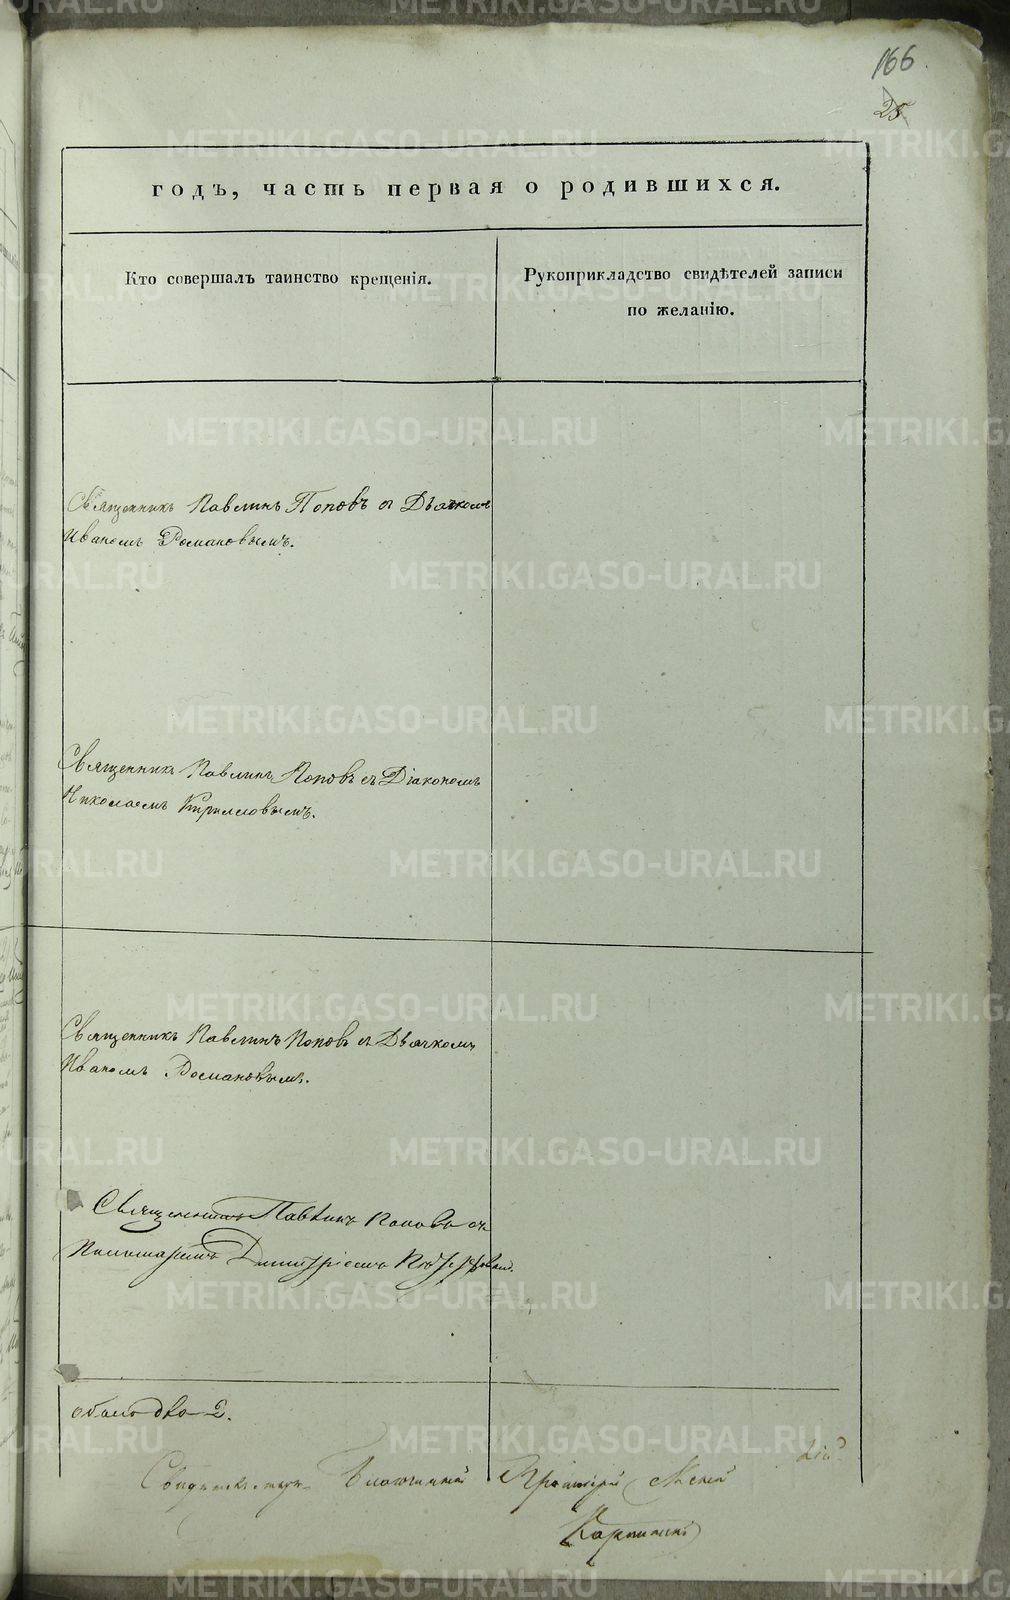 166
25
годъ, часть первая о родившихся.
Кто совершалъ таинство крещенія.
Рукоприкладство свидѣтелей записи
по желанію.
Священникъ Павлинъ Поповъ съ Дьячкомъ
Иваномъ Романовымъ.
Священникъ Павлинъ Поповъ съ Діакономъ
Николаемъ Кирилловымъ.
Священникъ Павлинъ Поповъ съ Дьячкомъ
Иваномъ Романовымъ.
Священникъ Павлинъ Поповъ съ
Пономаремъ Димитріемъ
обоего два 2.
Благочинный Протоіерей
METRIKI.GASO-URAL.RU